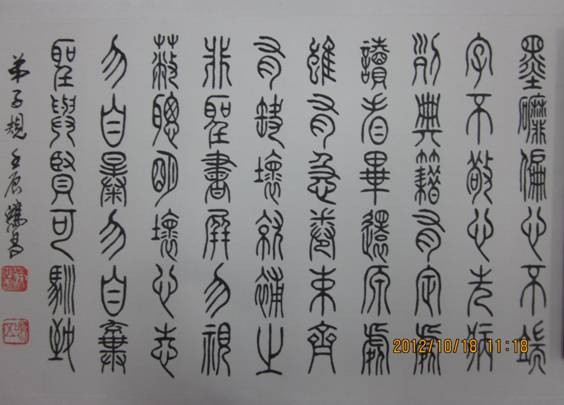 墨磨偏心不端
字不敬心先病
列典籍有定處
讀看畢還原處
雖有急卷束齊
有缺壞就補之
非聖書屏勿視
蔽聰明壞心志
勿自暴勿自棄
聖與賢可馴致
弟子規 壬辰
2012/10/18 11:18